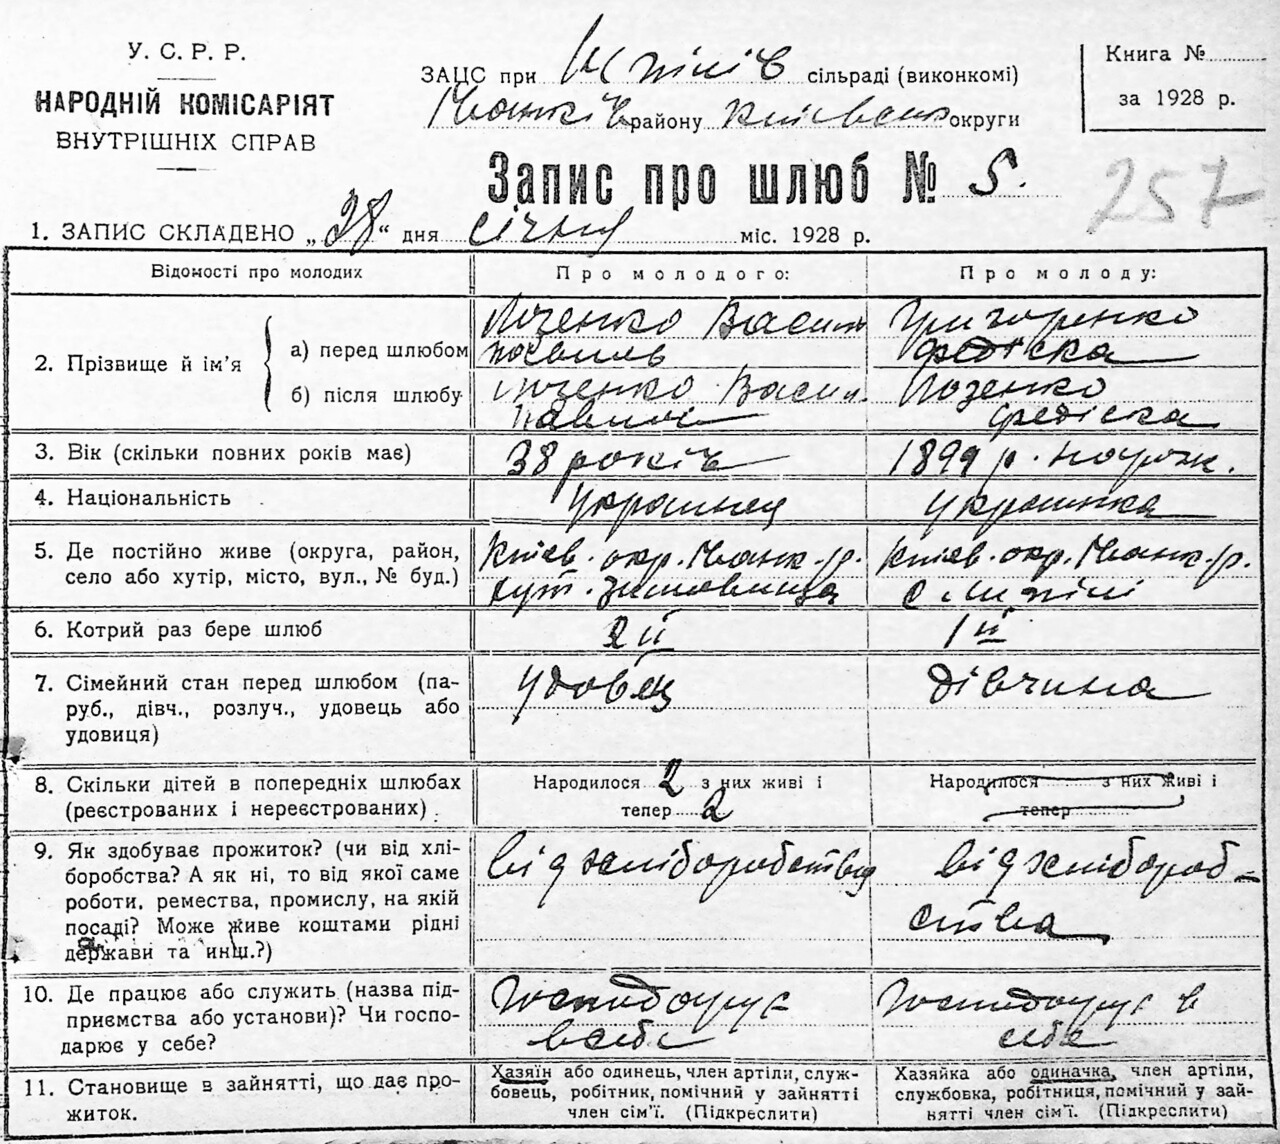 У. С. Р. Р.
НАРОДНІЙ КОМІСАРІЯТ
ВНУТРІШНІХ СПРАВ
ЗАЦС при сільраді (виконкомі)
району округи
Книга №
за 1928 р.
Запис про шлюб № 5.
257
1. ЗАПИС СКЛАДЕНО „28“ дня січня міс. 1928 р.
Відомості про молодих
Про молодого:
Про молоду:
2. Прізвище й ім’я
а) перед шлюбом
Васил
Григоренко
Федіска
б) після шлюбу
Васил
Лозенко
Федіска
3. Вік (скільки повних років має)
38 років
1899 р. народж.
4. Національність
Українец
Українка
5. Де постійно живе (округа, район,
село або хутір, місто, вул., № буд.)
Київ. окр. Іванк. р.
хут. Зимовища
Київ. окр. Іванк. р.
с.
6. Котрий раз бере шлюб
2й
1й
7. Сімейний стан перед шлюбом (па-
руб., дівч., розлуч., удовець або
удовиця)
Удовец
Дівчина
8. Скільки дітей в попередніх шлюбах
(реєстрованих і нереєстрованих).
Народилося 2 з них живі і
тепер 2
Народилося з них живі і
тепер
9. Як здобуває прожиток? (чи від хлі-
боробства? А як ні, то від якої саме
роботи, ремества, промислу, на якій
посаді? Може живе коштами рідні
держави та инш.?)
від хліборобства
від хлібороб-
ства
10. Де працює або служить (назва під-
приємства або установи)? Чи госпо-
дарює у себе?
Господарує
в себе
Господарує в
себе
11. Становище в зайнятті, що дає про-
житок.
Хазяїн або одинець, член артіли, служ-
бовець, робітник, помічний у зайнятті
член сім’ї. (Підкреслити)
Хазяйка або одиначка, член артіли,
службовка, робітниця, помічний у зай-
нятті член сім’ї. (Підкреслити)